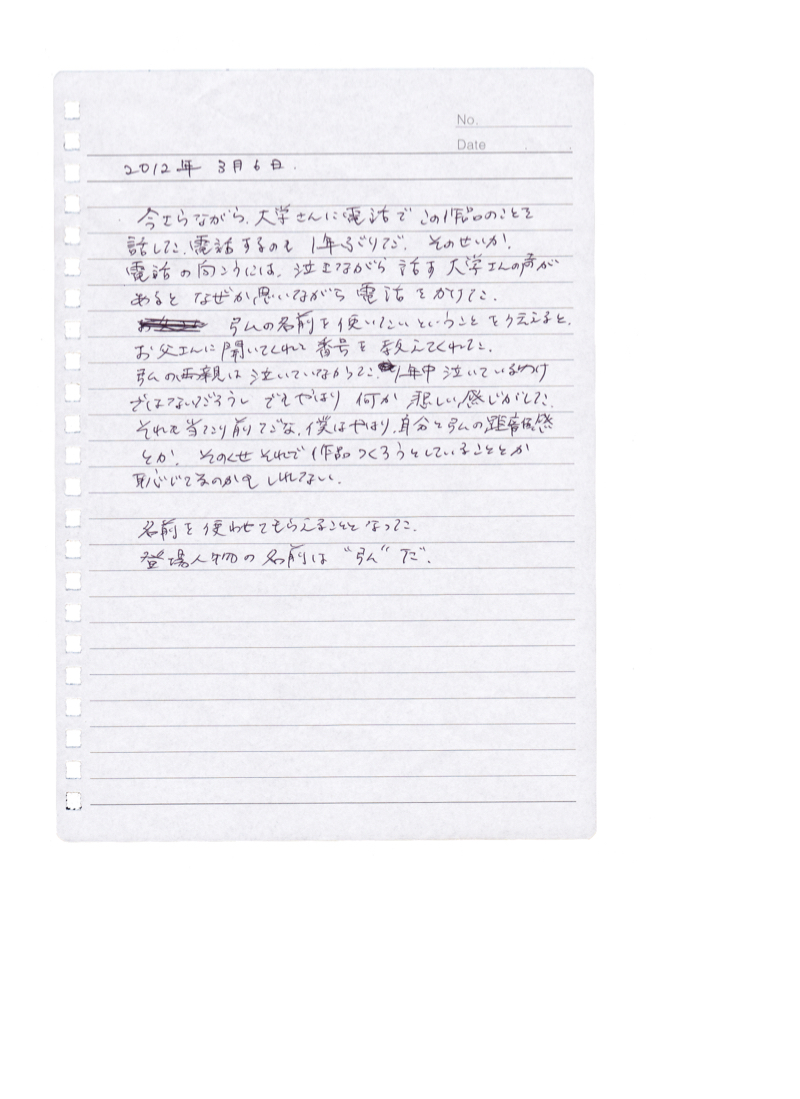 No.
Date
2012年 3月6日.
今さらながら、大学さんに電話でこの作品のことを
話した。電話するのも 1年ぶりだ。そのせいか、
電話の向こうには、泣きながら 話す 大学さんの声が
あると なぜか思いながら 電話をかけた。
弓ムの名前を使いたいということを伝えると、
お父さんに聞いてくれて 番号を教えてくれた。
弓ムの両親は泣いていなかった。1年中泣いているわけ
ではないだろうし でもやはり 何か 悲しい感じがした。
それも当たり前だな、僕はやはり、自分と弓ムの距離感
とか、そのくせそれで作品つくろうとしていることとか
恥じてるのかもしれない。
名前を使わせてもらえることとなった。
登場人物の名前は “弓ム” だ。